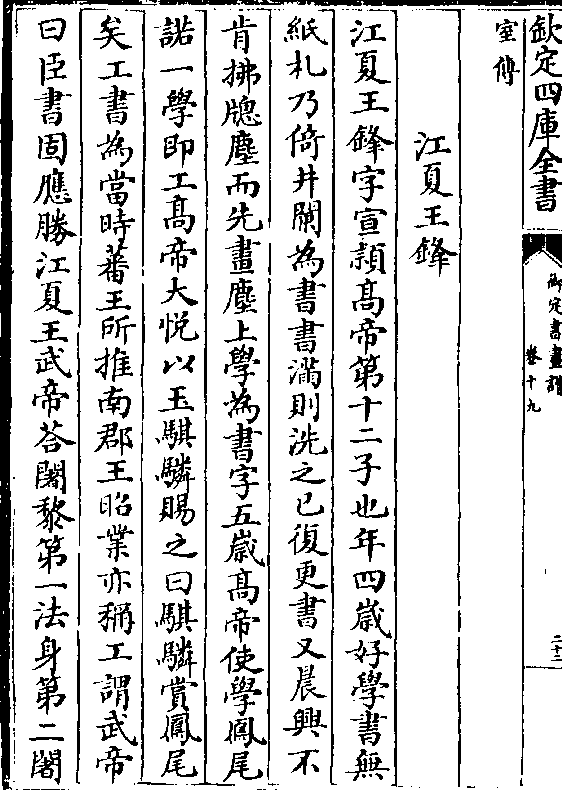 欽定四庫全書
御定書畫譜
卷十九
二十二
室傳
江夏王鋒
江夏王鋒字宣頴髙帝第十二子也年四嵗好學書無
紙札乃倚井闌為書書滿則洗之已復更書又晨興不
肯拂牎塵而先畫塵上學為書字五嵗髙帝使學鳳尾
諾一學即工髙帝大悅以玉騏驎賜之曰騏驎賞鳳尾
矣工書為當時蕃王所推南郡王昭業亦稱工謂武帝
曰臣書固應勝江夏王武帝荅闍黎第一法身第二闍